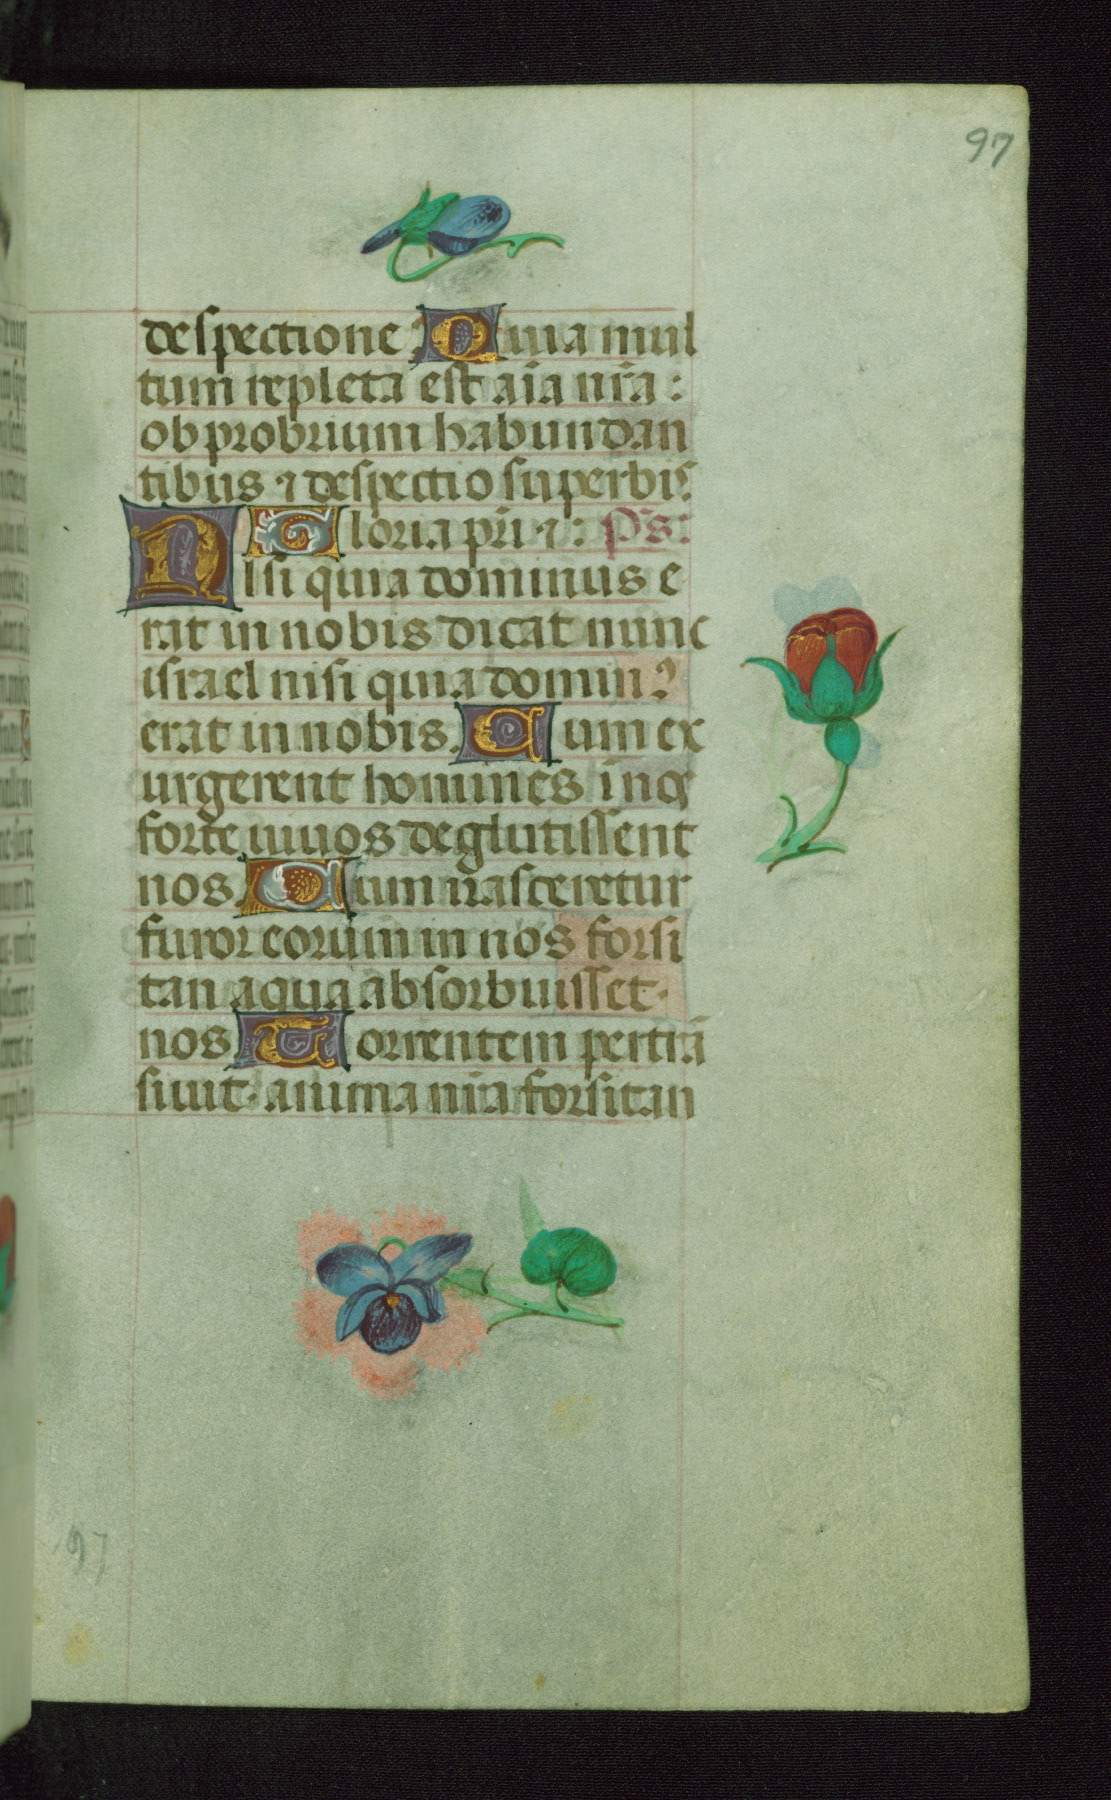 97
despectione Quia mul
tum repleta est aīa nr̄a :
obprobrium habundan
tibus ⁊ despectio superbis
Gloria pr̄i ⁊ : Ps̄:
Nisi quia dominus e
rat in nobis dicat nunc
israel nisi quia dominꝰ
erat in nobis. Cum ex
urgerent homines ī nos
forte uiuos deglutissent
nos. Cum irasceretur
furor eorum in nos forsi
tan aqua absorbuisset
nos Torrentem pertrā
siuit. anima nr̄a forsitan
97